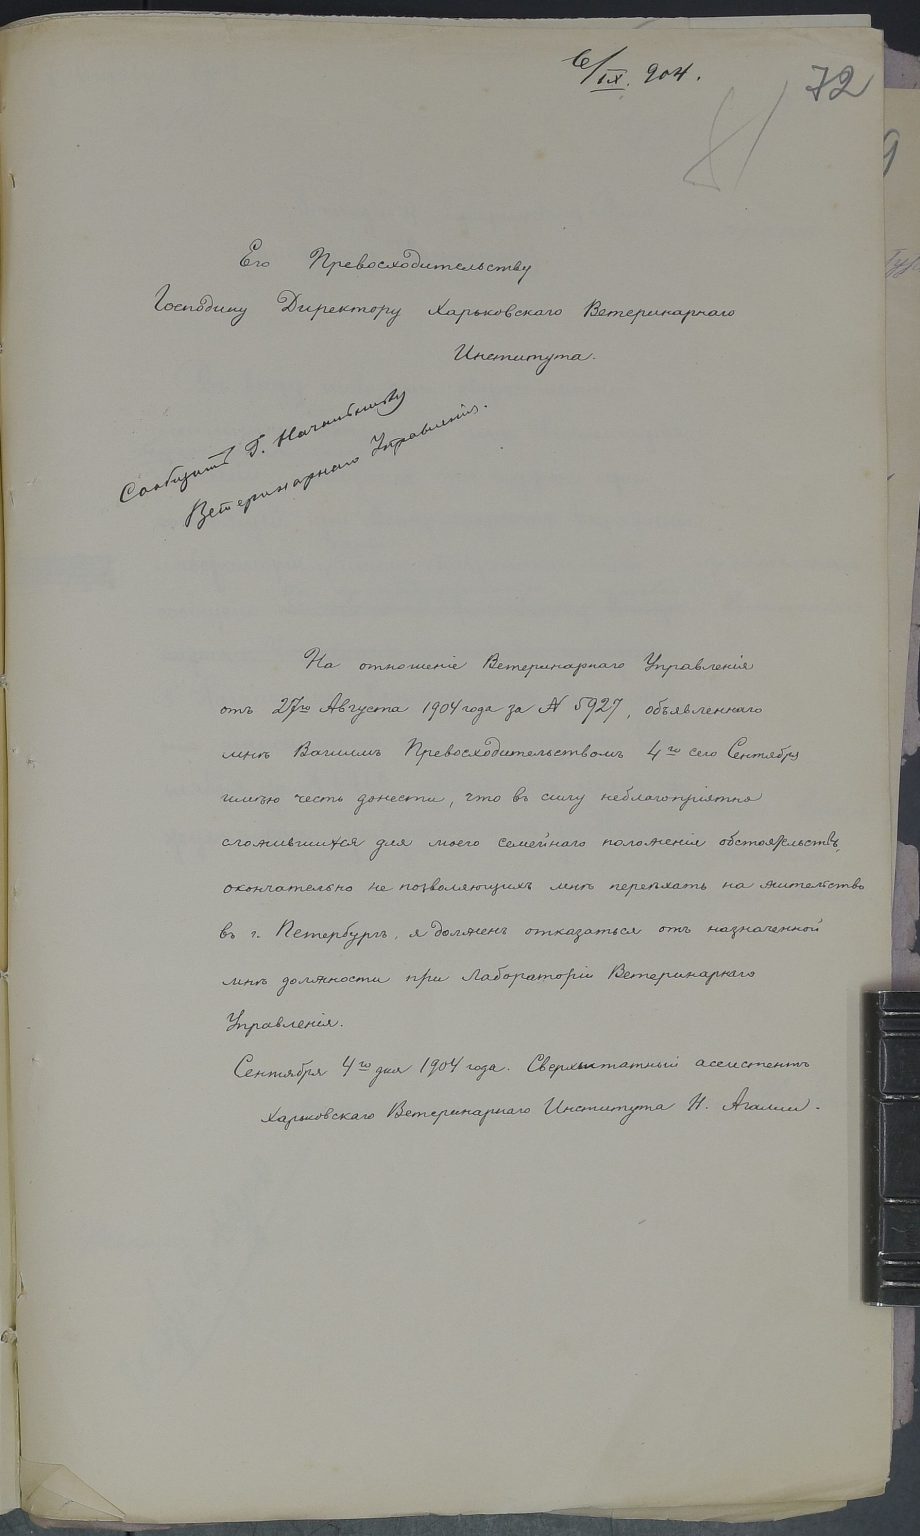 6/IX. 904.
72
81
Его Превосходительству
Господину Директору Харьковскаго Ветеринарнаго
Института.
Сообщить Г. Начальнику
Ветеринарнаго Управленія.
На отношеніе Ветеринарнаго Управленія
отъ 27го Августа 1904 года за N 5927, объявленнаго
мнѣ Вашимъ Превосходительствомъ 4го сего Сентября
имѣю честь донести, что въ силу неблагопріятно
сложившихся для моего семейнаго положенія обстоятельствъ,
окончательно не позволяющихъ мнѣ переѣхать на жительство
въ г. Петербургъ, я долженъ отказаться отъ назначенной
мнѣ должности при Лабораторіи Ветеринарнаго
Управленія.
Сентября 4го дня 1904 года. Сверхштатный ассистентъ
Харьковскаго Ветеринарнаго Института Н. Агалли.